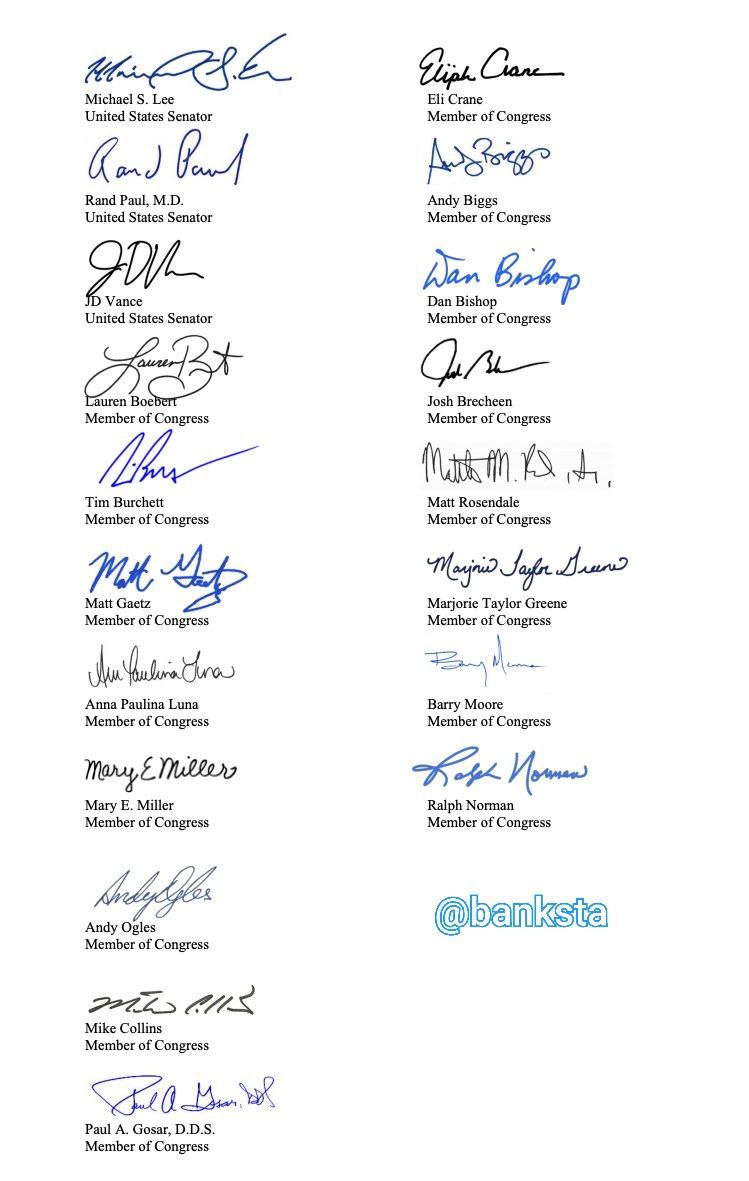 Michael S. Lee
United States Senator
Rand Paul
Rand Paul, M.D.
United States Senator
JD Vance
United States Senator
Lauren Boebert
Member of Congress
Tim Burchett
Member of Congress
Matt Gaetz
Matt Gaetz
Member of Congress
Anna Paulina Luna
Member of Congress
Mary E Miller
Mary E. Miller
Member of Congress
Andy Ogles
Andy Ogles
Member of Congress
Mike Collins
Member of Congress
Paul A. Gosar, DDS
Paul A. Gosar, D.D.S.
Member of Congress
Elijah Crane
Eli Crane
Member of Congress
Andy Biggs
Andy Biggs
Member of Congress
Dan Bishop
Dan Bishop
Member of Congress
Josh Brecheen
Member of Congress
Matt Rosendale
Member of Congress
Marjorie Taylor Greene
Marjorie Taylor Greene
Member of Congress
Barry Moore
Member of Congress
Ralph Norman
Ralph Norman
Member of Congress
@banksta